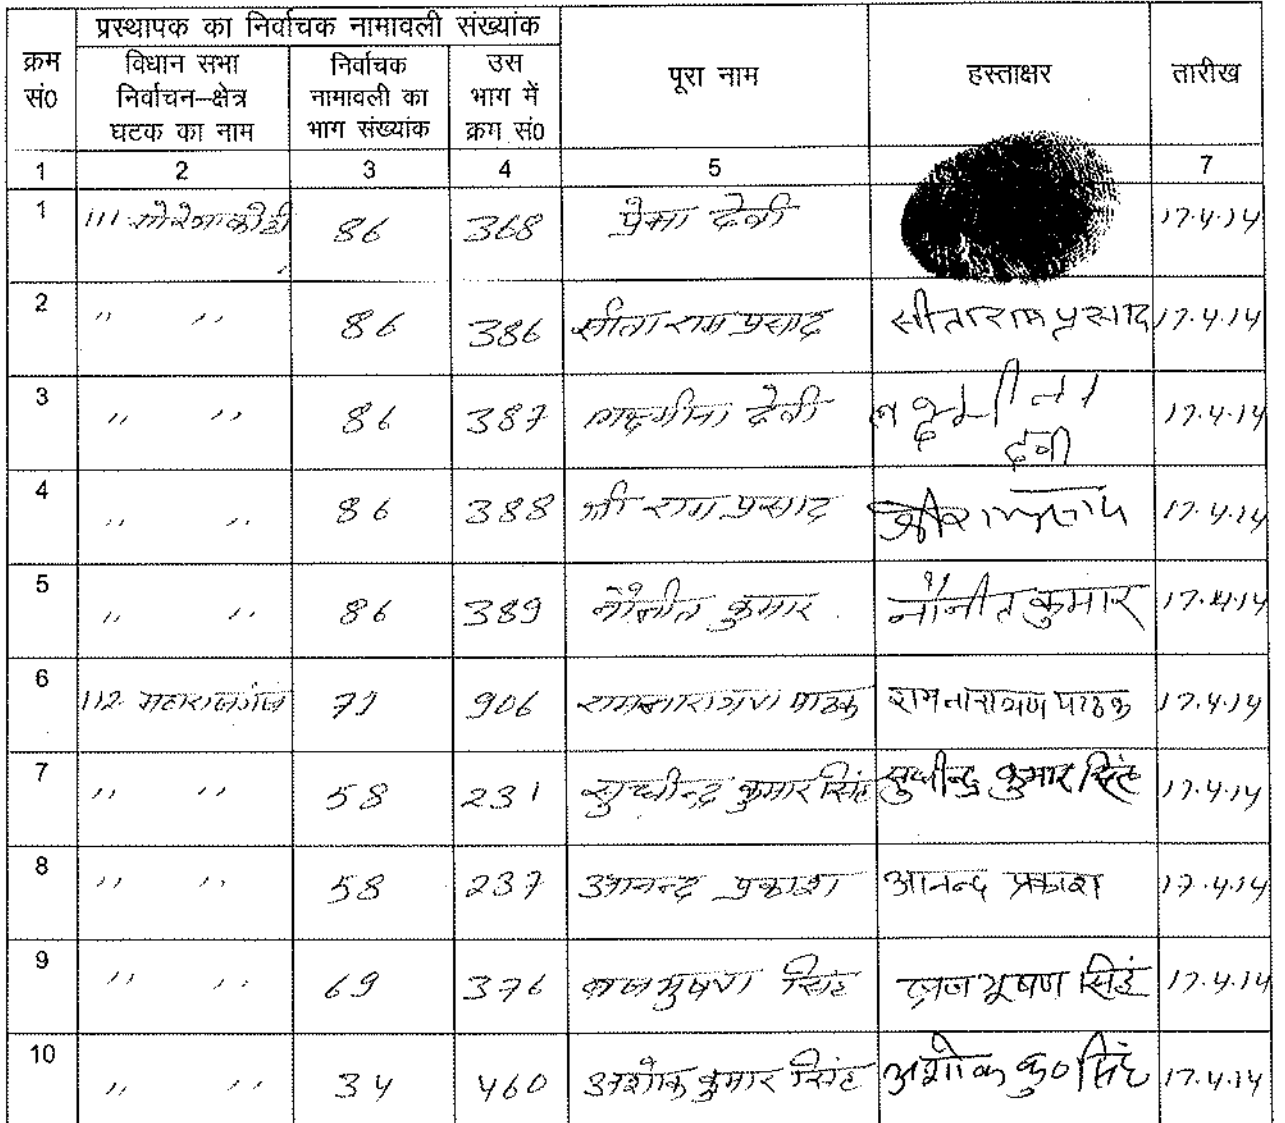 प्रस्थापक का निर्वाचक नामावली संख्यांक
क्रम सं0 विधान सभा निर्वाचन–क्षेत्र घटक का नाम निर्वाचक नामावली का भाग संख्यांक उस भाग में क्रम सं0 पूरा नाम हस्ताक्षर तारीख
1 2 3 4 5 7
1 111 गोरेयाकोठी 86 368 प्रेमा देवी 17.4.14
2 " " 86 386 सीता राम प्रसाद सीताराम प्रसाद 17.4.14
3 " " 86 387 देवी देवी 17.4.14
4 " " 86 388 श्री राम प्रसाद 17.4.14
5 " " 86 389 नौनीत कुमार नौनीत कुमार 17.4.14
6 112 महाराजगंज 71 906 रामनारायण पाठक रामनारायण पाठक 17.4.14
7 " " 58 231 सुधीन्द्र कुमार सिंह सुधीन्द्र कुमार सिंह 17.4.14
8 " " 58 237 आनन्द प्रकाश आनन्द प्रकाश 17.4.14
9 " " 69 376 सिंह ब्रज भूषण सिंह 17.4.14
10 " " 34 460 अशोक कुमार सिंह अशोक कु0 सिंह 17.4.14